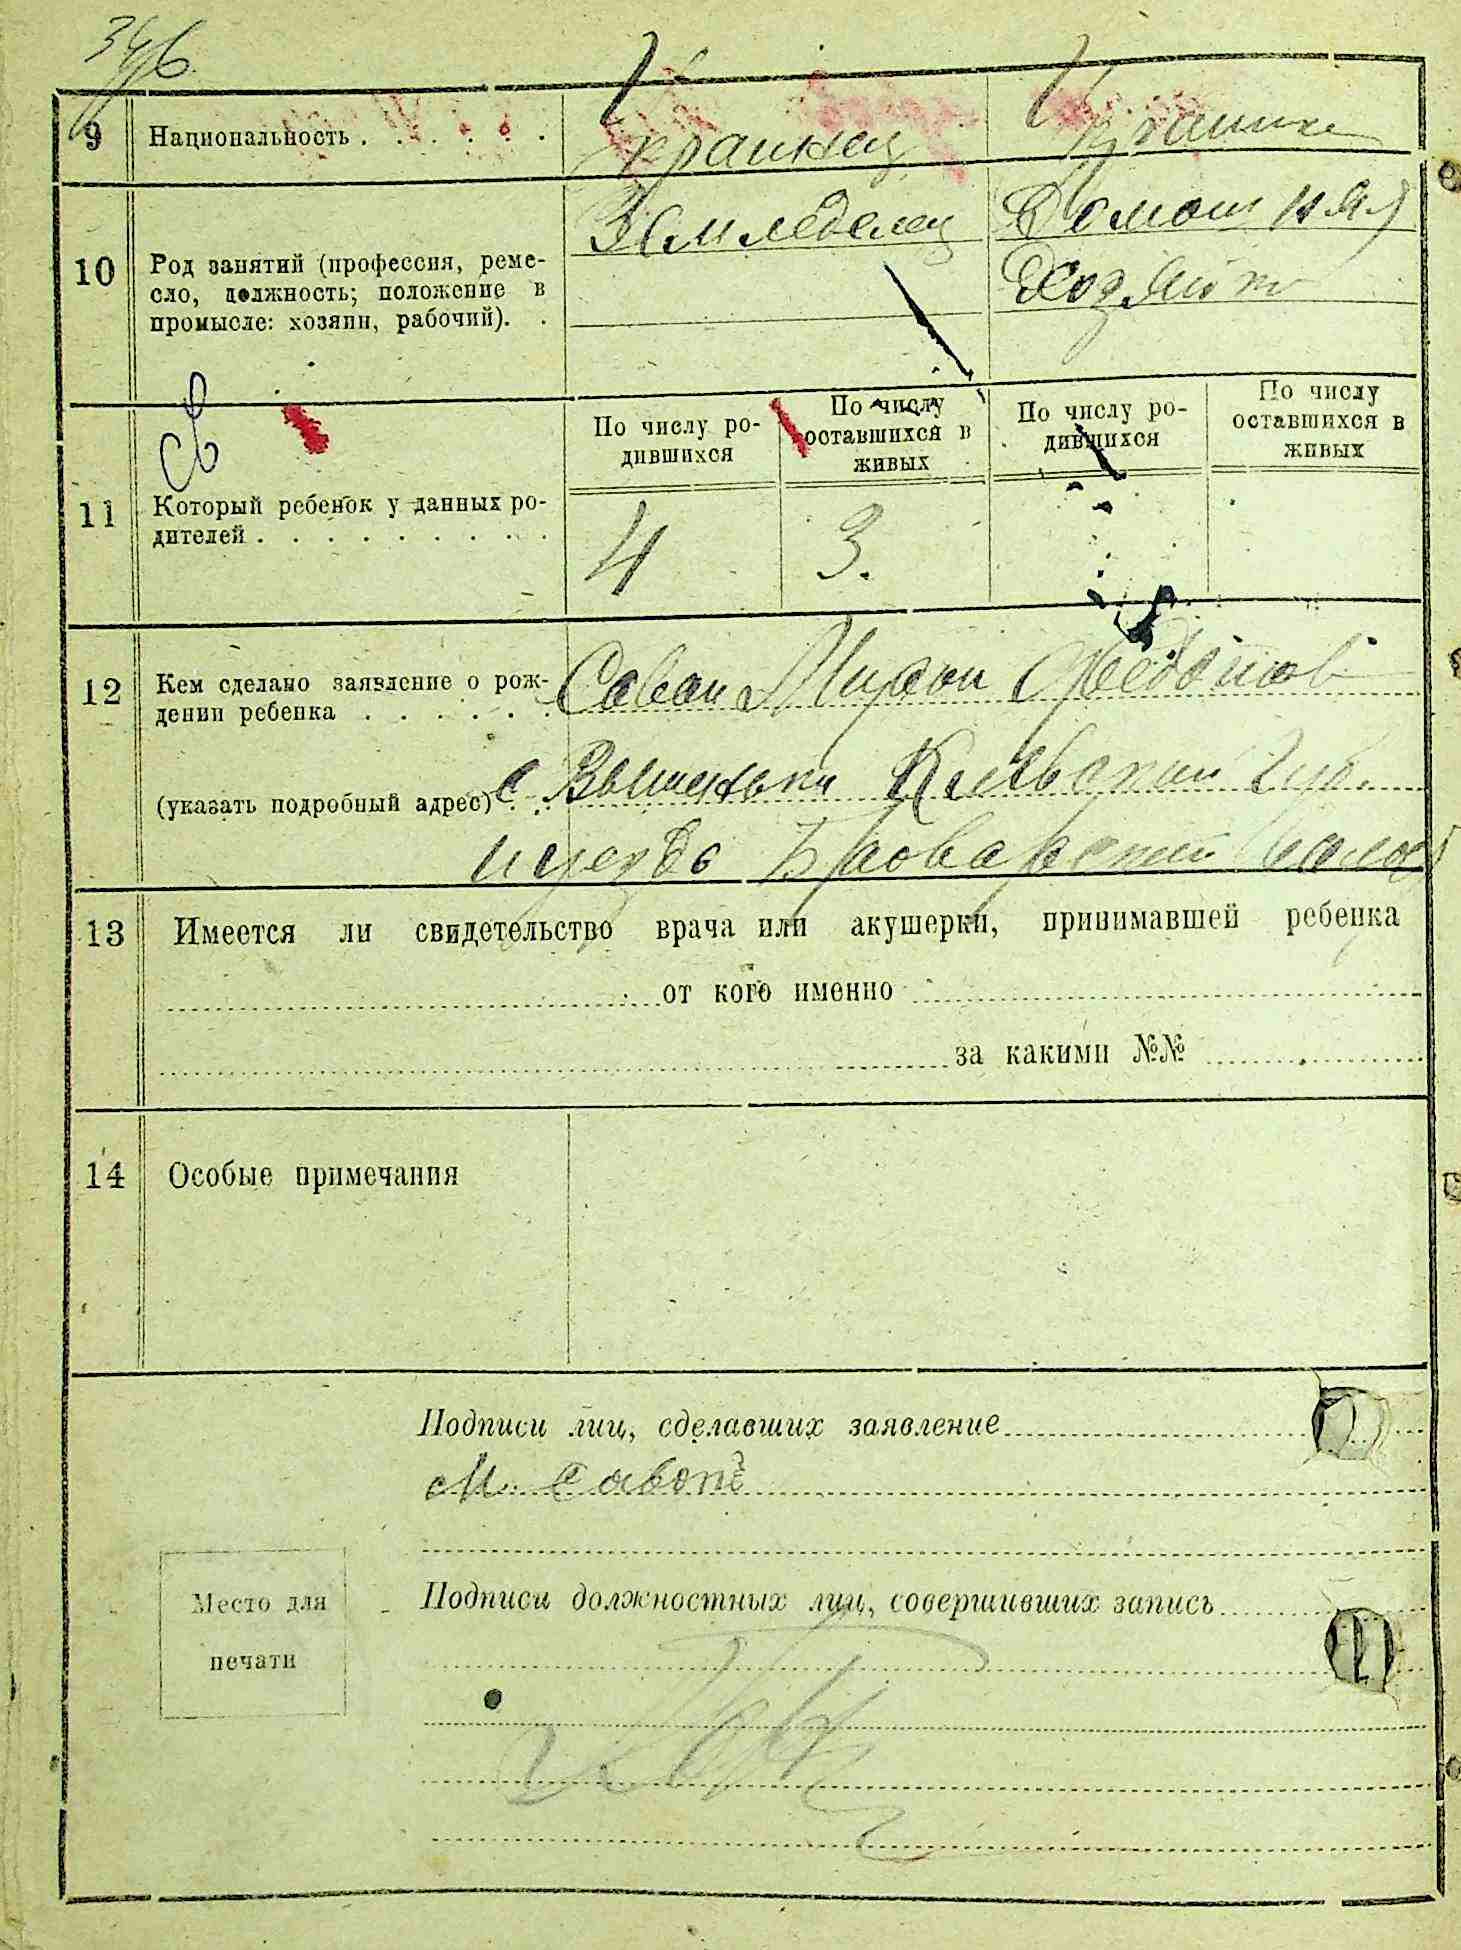 9 Национальность . . . . . . Украинец Украинка
Земледелец Домашняя
10 Род занятий (профессия, реме-
сло, должность; положение в
промысле: хозяин, рабочий). .
Св
По числу ро-
дившихся
По числу
оставшихся в
живых
По числу ро-
дившихся
По числу
оставшихся в
живых
11 Который ребенок у данных ро-
дителей . . . . . . . . .
4 3.
12 Кем сделано заявление о рож-
дении ребенка . . . . . . Савон Мирон
(указать подробный адрес) с Вышеньки Киевской губ.
и уезда Броварской волос
13 Имеется ли свидетельство врача или акушерки, принимавшей ребенка
от кого именно
за какими №№
14 Особые примечания
Подписи лиц, сделавших заявление
М. Савон
Подписи должностных лиц, совершивших запись
Место для
печати